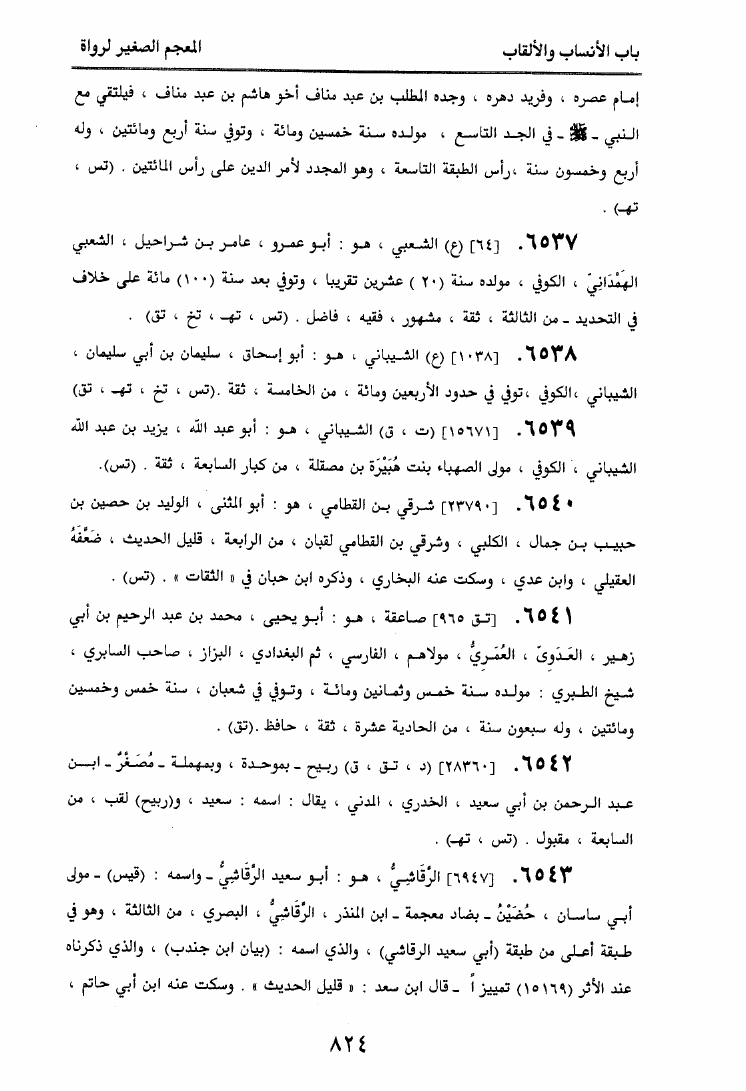 باب الأنساب والألقاب
المعجم الصغير لرواة
إمام عصره ، وفريد دهره ، وجده المطلب بن عبد مناف أخو هاشم بن عبد مناف ، فيلتقي مع
النبي ـ ﷺ ـ في الجد التاسع ، مولده سنة خمسين ومائة ، وتوفي سنة أربع ومائتين ، وله
أربع وخمسون سنة ،رأس الطبقة التاسعة ، وهو المجدد لأمر الدين على رأس المائتين . (تس ،
تهـ) .
٦٥٣٧. [٦٤] (ع) الشعبي ، هو : أبو عمرو ، عامر بن شراحيل ، الشعبي
الهَمْدَانيّ ، الكوفي ، مولده سنة (٢٠ ) عشرين تقريبا ، وتوفي بعد سنة (١٠٠) مائة على خلاف
في التحديد ـ من الثالثة ، ثقة ، مشهور ، فقيه ، فاضل . (تس ، تهـ ، تخ ، تق) .
٦٥٣٨. [١٠٣٨] (ع) الشيباني ، هو : أبو إسحاق ، سليمان بن أبي سليمان ،
الشيباني ،الكوفي ،توفي في حدود الأربعين ومائة ، من الخامسة ، ثقة .(تس ، تخ ، تهـ ، تق)
٦٥٣٩. [١٥٦٧١] (ت ، ق) الشيباني ، هو : أبو عبد الله ، يزيد بن عبد الله
الشيباني ، الكوفي ، مولى الصهباء بنت هُبَيْرَة بن مصقلة ، من كبار السابعة ، ثقة . (تس).
٦٥٤٠. [٢٣٧٩٠] شرقي بن القطامي ، هو : أبو المثنى ، الوليد بن حصين بن
حبيب بن جمال ، الكلبي ، وشرقي بن القطامي لقبان ، من الرابعة ، قليل الحديث ، ضَعَّفَهُ
العقيلي ، وابن عدي ، وسكت عنه البخاري ، وذكره ابن حبان في « الثقات » . (تس) .
٦٥٤١. [تق ٩٦٥] صاعقة ، هو : أبو يحيى ، محمد بن عبد الرحيم بن أبي
زهير ، العَدَوِىّ ، العُمَرِيُّ ، مولاهم ، الفارسي ، ثم البغدادي ، البزاز ، صاحب السابري ،
شيخ الطبري : مولده سنة خمس وثمانين ومائة ، وتوفي في شعبان ، سنة خمس وخمسين
ومائتين ، وله سبعون سنة ، من الحادية عشرة ، ثقة ، حافظ .(تق) .
٦٥٤٢. [٢٨٣٦٠] (د ، تق ، ق) ربيح ـ بموحدة ، وبمهملة ـ مُصَغْرٌ ـ ابن
عبد الرحمن بن أبي سعيد ، الخدري ، المدني ، يقال : اسمه : سعيد ، و(ربيح) لقب ، من
السابعة ، مقبول . (تس ، تهـ) .
٦٥٤٣. [٦٩٤٧] الرَّقَاشِيُّ ، هو : أبو سعيد الرَّقَاشِيُّ ـ واسمه : (قيس) ـ مولى
أبي ساسان ، حُضَيْنُ ـ بضاد معجمة ـ ابن المنذر ، الرَّقَاشِيُّ ، البصري ، من الثالثة ، وهو في
طبقة أعلى من طبقة (أبي سعيد الرقاشي) ، والذي اسمه : (بيان ابن جندب) ، والذي ذكرناه
عند الأثر (١٥١٦٩) تمييز اً ـ قال ابن سعد : « قليل الحديث » . وسكت عنه ابن أبي حاتم ،
٨٢٤